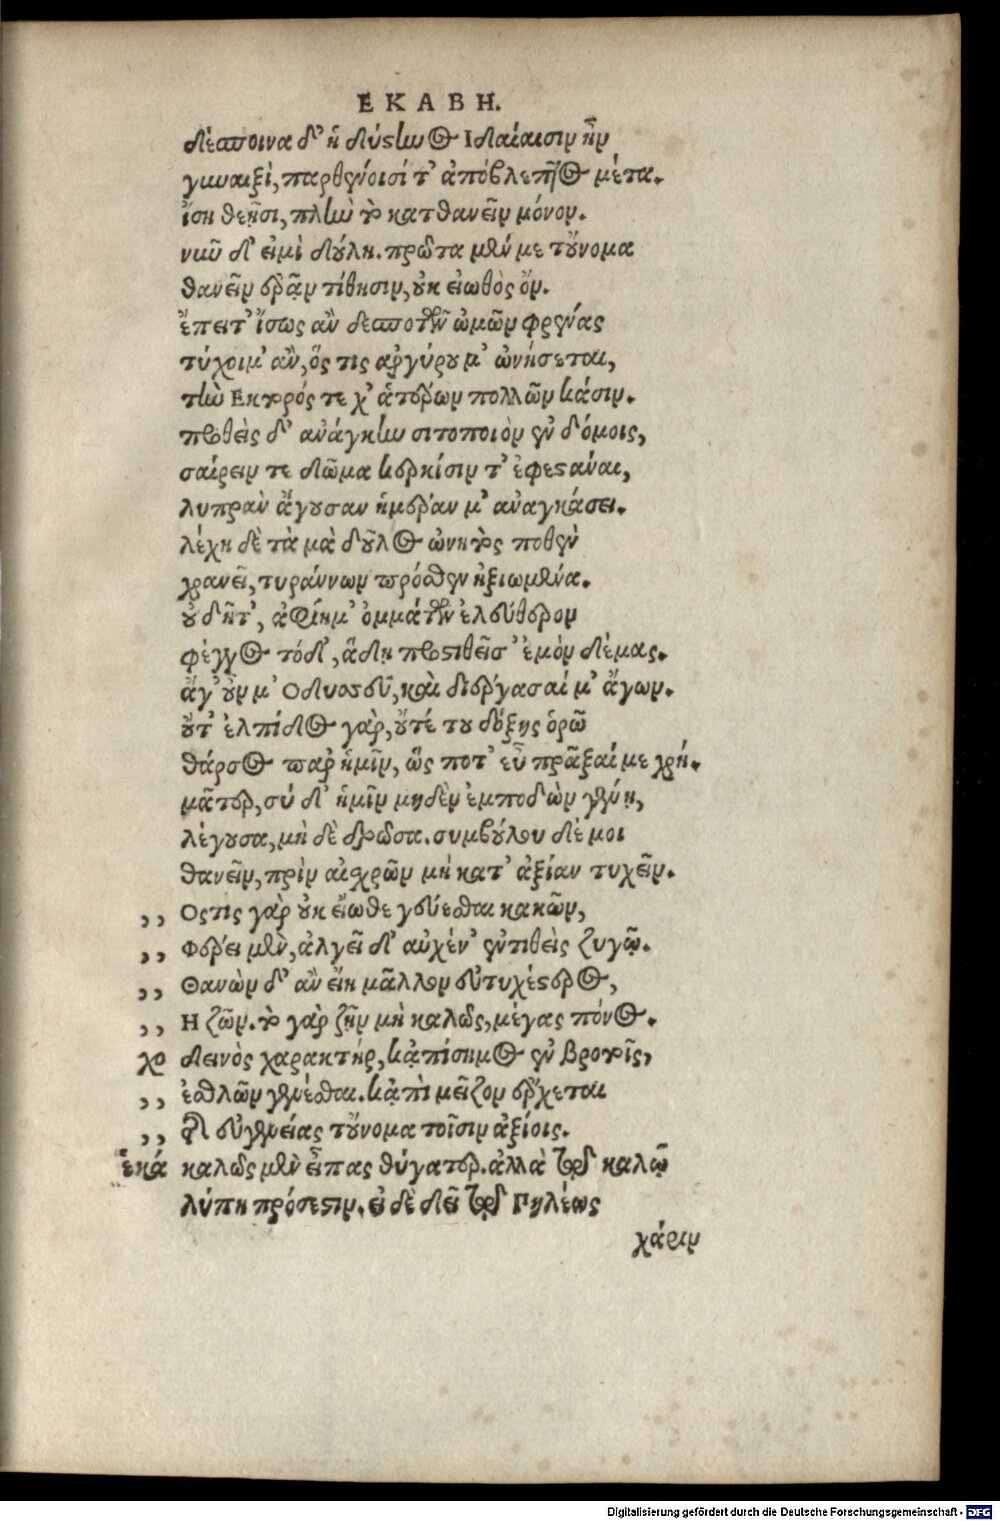 ΕΚΑΒΗ.
δέσποινα δ' ἡ δύστηνος Ιδαίαισιν ἦν
γυναιξὶ, παρθένοισί τ' ἀπόβλεπτος μέτα.
ἴση θεῇσι, πλὴν τὸ κατθανεῖν μόνον.
νῦν δ' εἰμὶ δούλη. πρῶτα μέν με τοὔνομα
θανεῖν ἐρᾷν τίθησιν, οὐκ εἰωθὸς ὄν.
ἔπειτ' ἴσως ἂν δεσποτῶν ὠμῶν φρένας
τύχοιμ' ἂν, ὅς τις ἀργύρου μ' ὠνήσεται,
τὴν Εκτορός τε χ' ἁτέρων πολλῶν κάσιν.
προθεὶς δ' ἀνάγκην σιτοποιὸν ἐν δόμοις,
σαίρειν τε δῶμα κερκίσιν τ' ἐφεστάναι,
λυπρὰν ἄγουσαν ἡμέραν μ' ἀναγκάσει.
λέχη δὲ τὰ μὰ δοῦλος ὠνητός ποθεν
χρανεῖ, τυράννων πρόσθεν ἠξιωμένα.
οὐ δῆτ', ἀφίημ' ὀμμάτων ἐλεύθερον
φέγγος τόδ', ἅδῃ προστιθεῖσ' ἐμὸν δέμας.
ἄγ' οὖν μ' Οδυσσεῦ, καὶ διέργασαί μ' ἄγων.
οὔτ' ἐλπίδος γὰρ, οὔτέ του δόξης ὁρῶ
θάρσος παρ' ἡμῖν, ὥς ποτ' εὖ πρᾶξαί με χρή.
μᾶτερ, σύ δ' ἡμῖν μηδὲν ἐμποδὼν γένῃ,
λέγουσα, μὴ δὲ δρῶσα. συμβούλου δέ μοι
θανεῖν, πρὶν αἰσχρῶν μὴ κατ' ἀξίαν τυχεῖν.
,, Οστις γὰρ οὐκ εἴωθε γεύεσθαι κακῶν,
,, Φέρει μὲν, ἀλγεῖ δ' αὐχέν' ἐντιθεὶς ζυγῷ.
,, Θανὼν δ' ἂν εἴη μᾶλλον εὐτυχέστερος,
,, Η ζῶν. τὸ γὰρ ζῇν μὴ καλῶς, μέγας πόνος.
χο δεινὸς χαρακτήρ, κἀπίσημος ἐν βροτοῖς,
,, ἐσθλῶν γενέσθαι. κἀπὶ μεῖζον ἔρχεται
,, Τῆς εὐγενείας τοὔνομα τοῖσιν ἀξίοις.
ἑκά καλῶς μὲν εἶπας θύγατερ. ἀλλὰ τῷ καλῷ
λύπη πρόσεστιν. εἰ δὲ δεῖ τῷ Πηλέως
χάριν
Digitalisierung gefördert durch die Deutsche Forschungsgemeinschaft - DFG